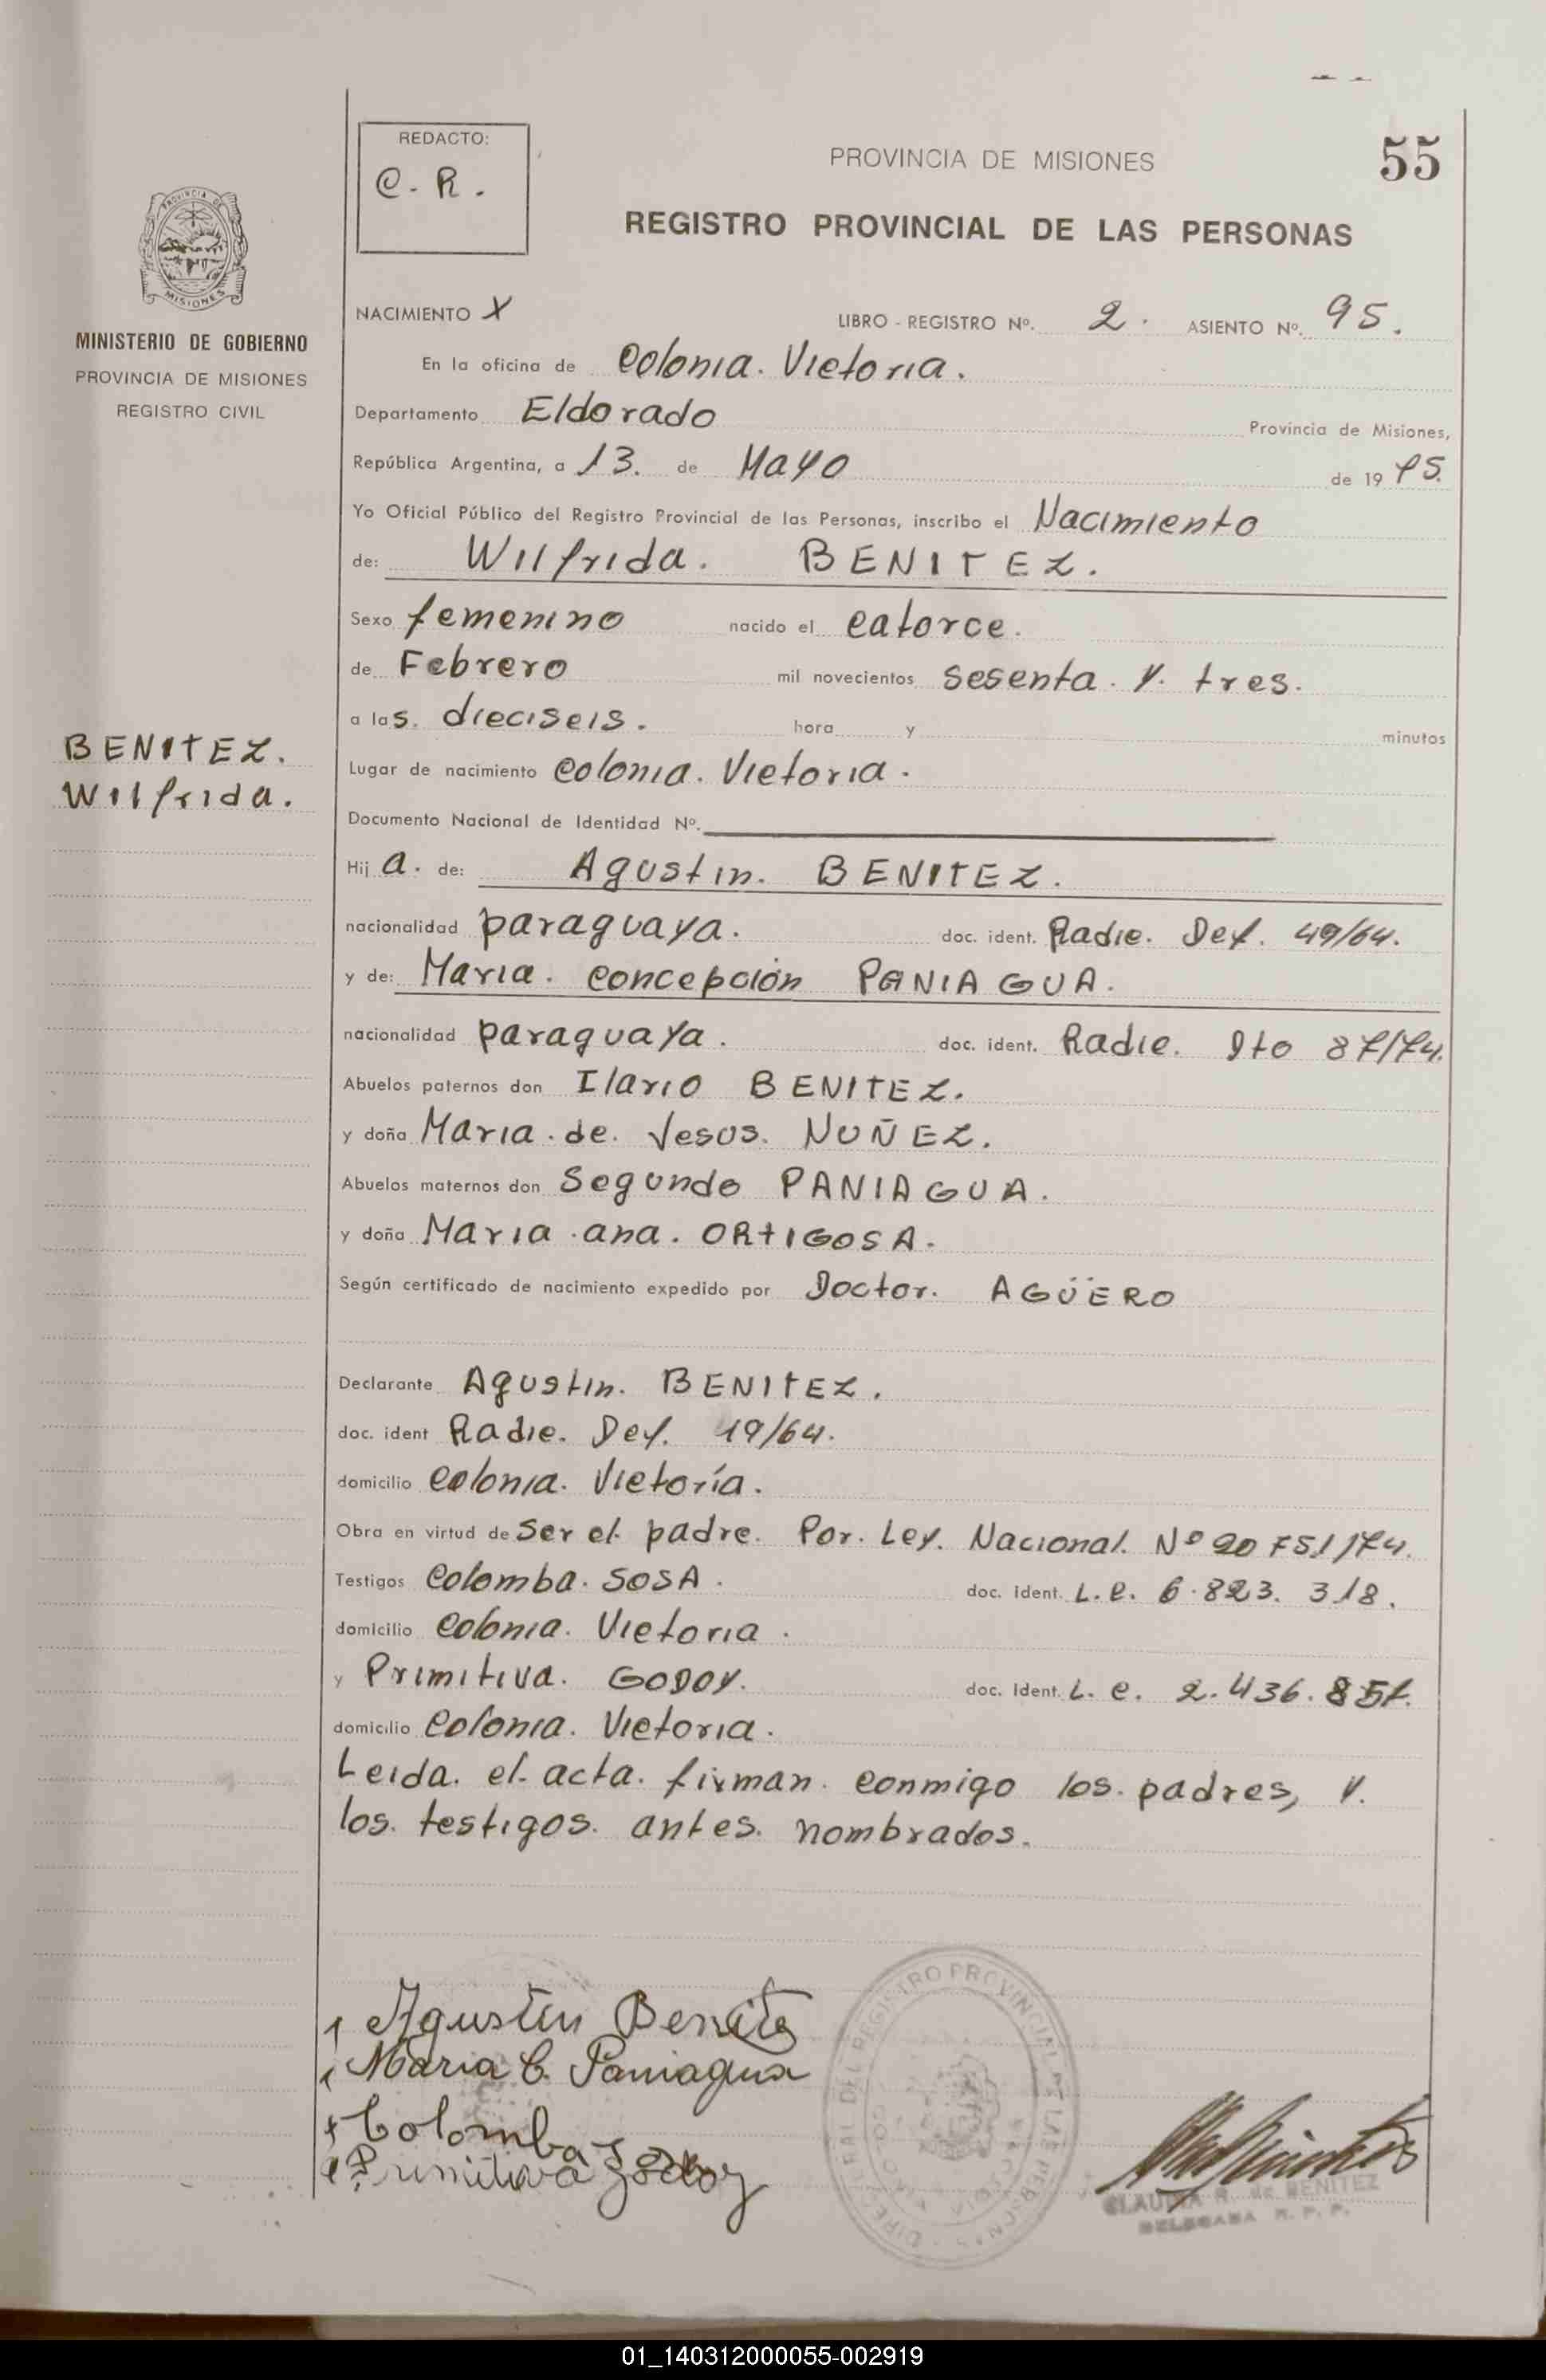 REDACTO:
C. R.
PROVINCIA DE MISIONES
55
REGISTRO PROVINCIAL DE LAS PERSONAS
MISIONES
MINISTERIO DE GOBIERNO
PROVINCIA DE MISIONES
REGISTRO CIVIL
NACIMIENTO X LIBRO - REGISTRO Nº. 2. ASIENTO Nº. 95.
En la oficina de Colonia. Victoria.
Departamento Eldorado Provincia de Misiones,
República Argentina, a 13. de Mayo de 19 75.
Yo Oficial Público del Registro Provincial de las Personas, inscribo el Nacimiento
de: Wilfrida. BENITEZ.
Sexo femenino nacido el catorce.
de Febrero mil novecientos sesenta. y. tres.
a las. dieciseis. hora y minutos
BENITEZ.
Wilfrida.
Lugar de nacimiento Colonia. Victoria.
Documento Nacional de Identidad Nº.
Hij a. de: Agustin. BENITEZ.
nacionalidad paraguaya. doc. ident. Radic. Def. 49/64.
y de: Maria. Concepción PANIAGUA.
nacionalidad paraguaya. doc. ident. Radic. Dto 87/74.
Abuelos paternos don Ilario BENITEZ.
y doña Maria. de. Jesus. NUÑEZ.
Abuelos maternos don Segundo PANIAGUA.
y doña Maria. ana. ORTIGOSA.
Según certificado de nacimiento expedido por Doctor. AGÜERO
Declarante Agustin. BENITEZ.
doc. ident Radic. Def. 49/64.
domicilio Colonia. Victoría.
Obra en virtud de Ser el. padre. Por. Ley. Nacional. Nº 20751/74.
Testigos Colomba. SOSA. doc. ident. L. C. 6.823.318.
domicilio Colonia. Victoria.
y Primitiva. GODOY. doc. ident. L. C. 2.436.857.
domicilio Colonia. Victoria.
Leida. el. acta. firman. conmigo los. padres, y.
los. testigos. antes. nombrados.
Agustin Benitez
Maria C. Paniagua
Colomba
Primitiva Godoy
CLAUDIA R. de BENITEZ
DELEGADA R. P. P.
01_140312000055-002919